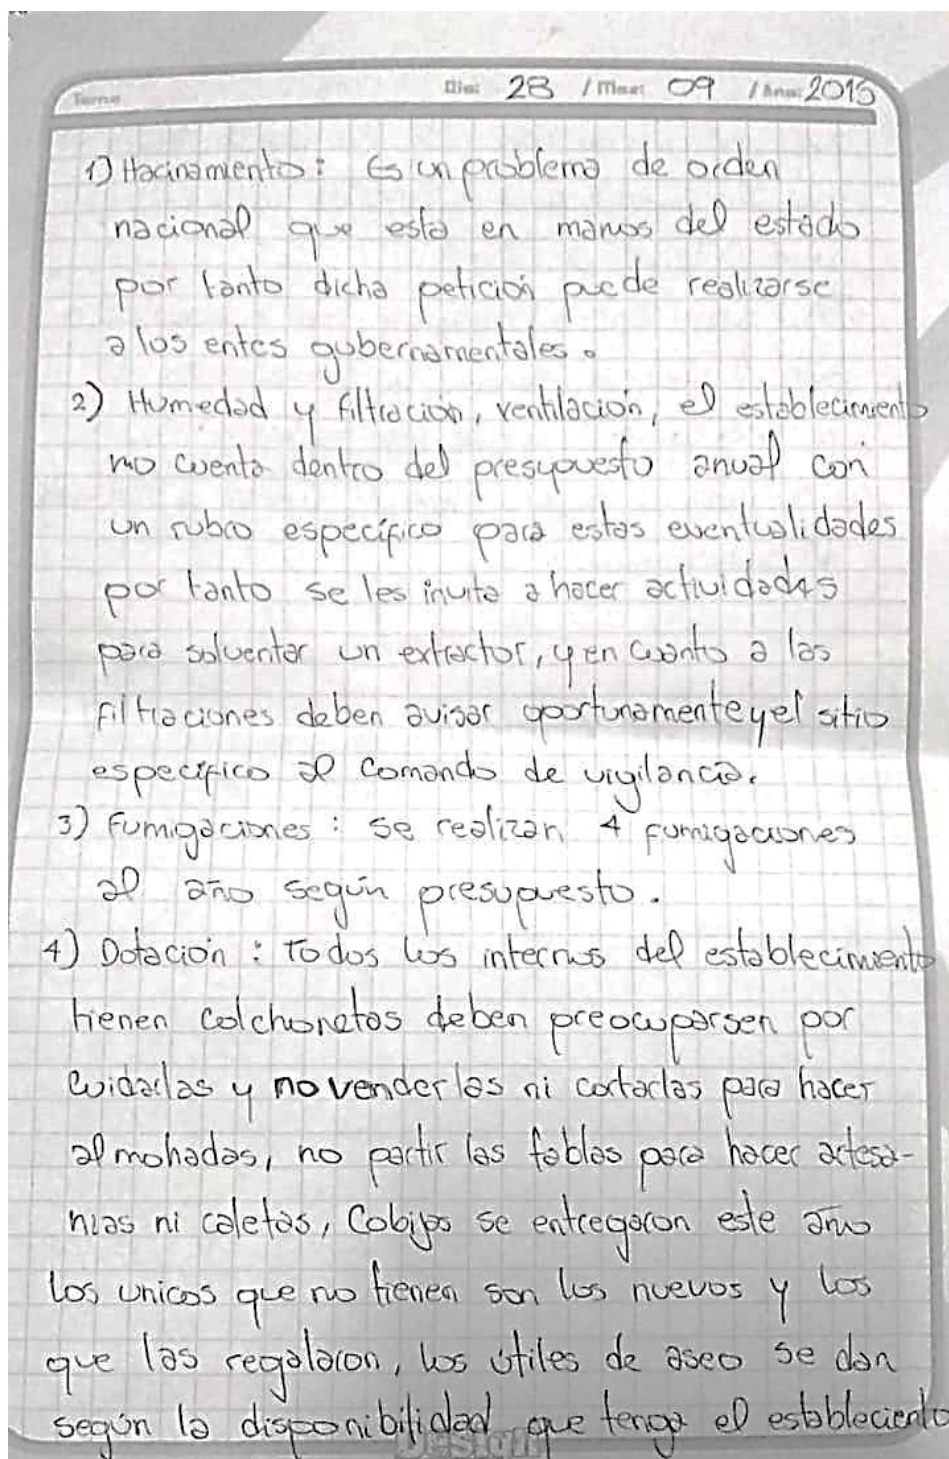 Tema Dia: 28 / Mes: 09 / Ano: 2015
1) Hacinamiento: Es un problema de orden
nacional que esta en manos del estado
por tanto dicha petición puede realizarse
a los entes gubernamentales.
2) Humedad y filtración, ventilación, el establecimiento
no cuenta dentro del presupuesto anual con
un rubro específico para estas eventualidades
por tanto se les invita a hacer actividades
para solventar un extractor, y en cuanto a las
filtraciones deben avisar oportunamente y el sitio
especifico al comando de vigilancia.
3) Fumigaciones: se realizan 4 fumigaciones
al año según presupuesto.
4) Dotación: Todos los internos del establecimiento
tienen colchonetas deben preocuparsen por
cuidarlas y no venderlas ni cortarlas para hacer
almohadas, no partir las tablas para hacer artesa-
nias ni caletas, Cobijas se entregaron este año
los unicos que no tienen son los nuevos y los
que las regalaron, los útiles de aseo se dan
según la disponibilidad que tenga el estableciento
Design